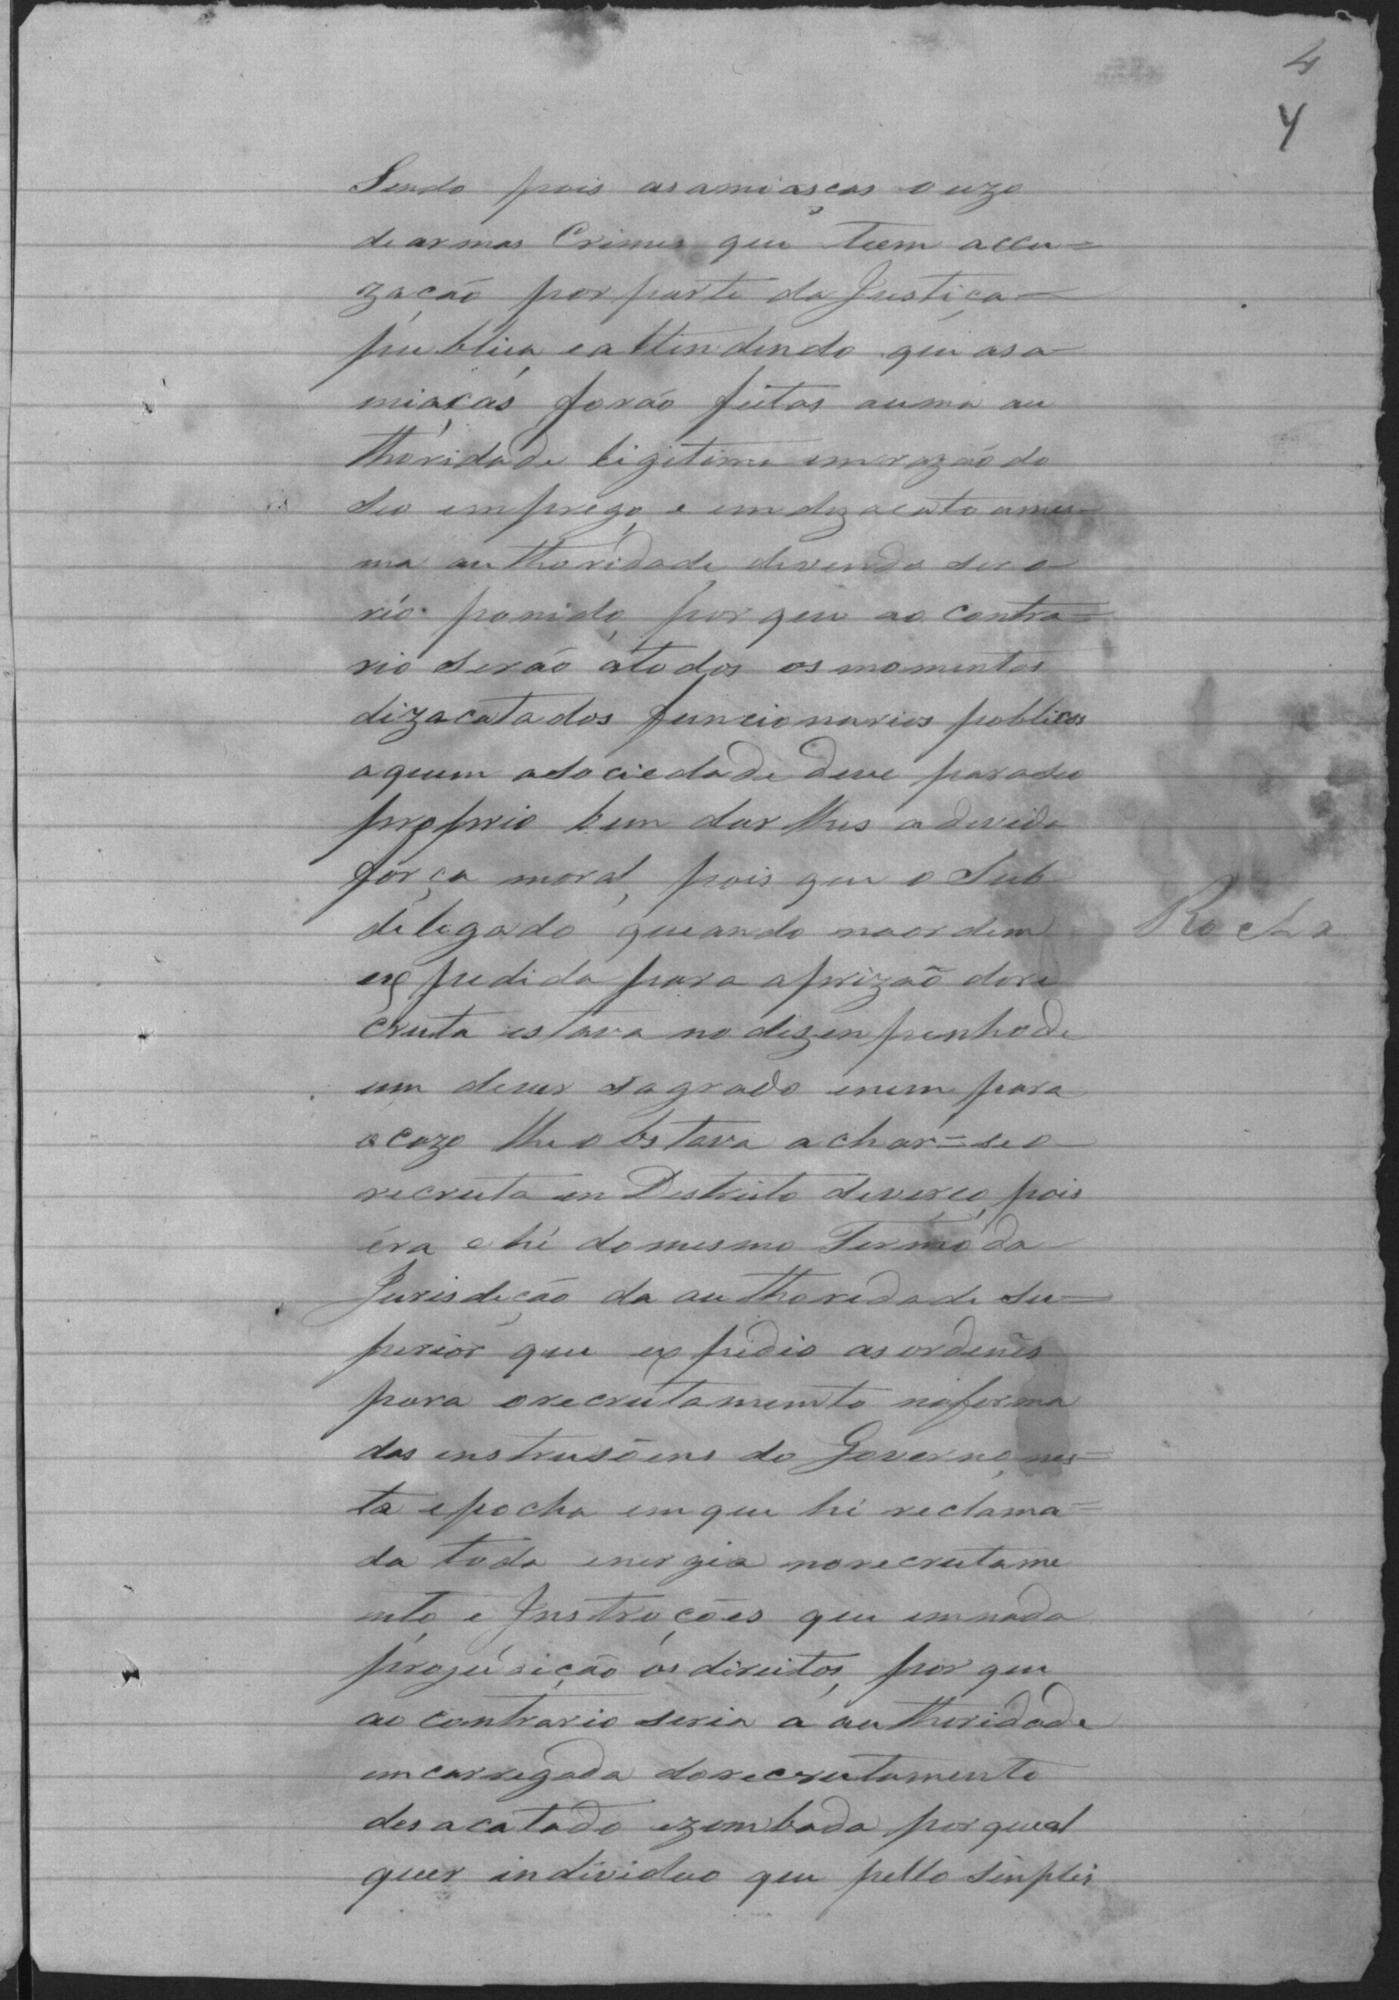 4
4
Sendo pois as amiascas o uzo
de armas Crimes que teem accu=
zação por parte da Justiça
publica, e attendendo que as a
miaças forão feitas a uma au
thoridade ligitima em razão do
seo emprego, e em dezacato a mes=
ma authoridade, devendo ser o
réo punido, por que ao contra=
rio serão a todos os momentos
dizacatados funcionarios poblicos
a quem a sociedade deve para seo
proprio bem dar lhes a devida
força moral, pois que o Sub
delegado quando na ordem
expedida para a prizão do re
cruta estava no dezenpenho de
um dever sagrado e nem para
o cazo lhe obstava achar=se o
recruta em Destrito deverço, pois
éra e hé do mesmo Termo da
Jurisdição da authoridade su=
perior que expidio as ordens
para o recrutamento na forma
das enstrusõens do Governo, nes=
ta epocha em que hé reclama=
da toda energia no recrutame
nto e Instroções que em nada
projudicão os direitos, por que
ao contrario seria a authoridade
encarregada do recrutamento
desacatado e zombada por qual
quer individuo que pello sinples
Rocha